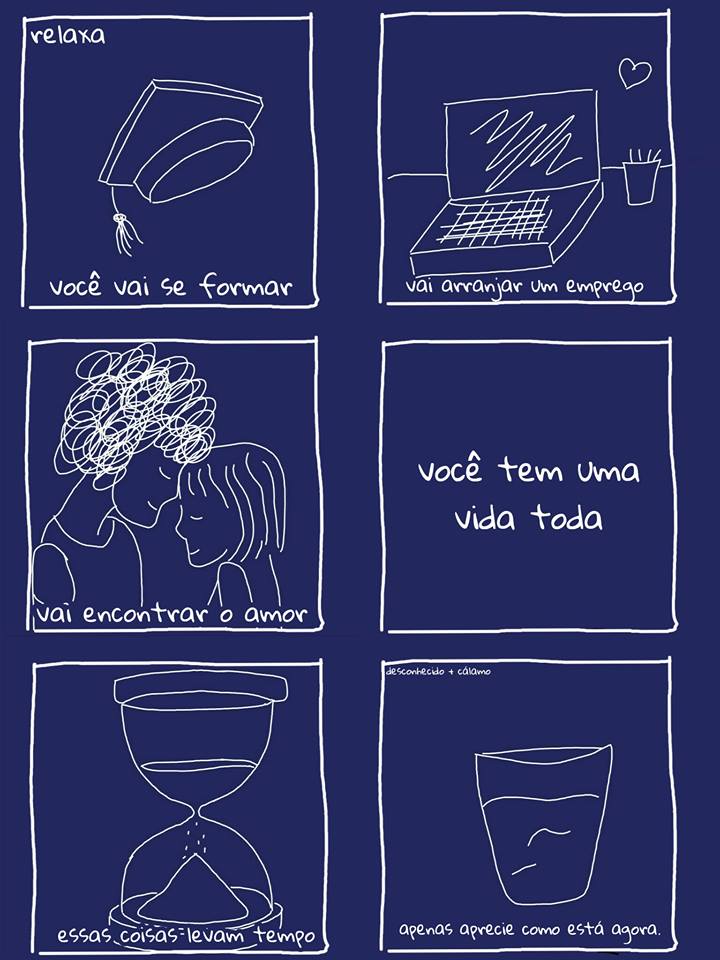 relaxa
você vai se formar
vai arranjar um emprego
vai encontrar o amor
você tem uma
vida toda
essas coisas levam tempo
desconhecido + cálamo
apenas aprecie como está agora.